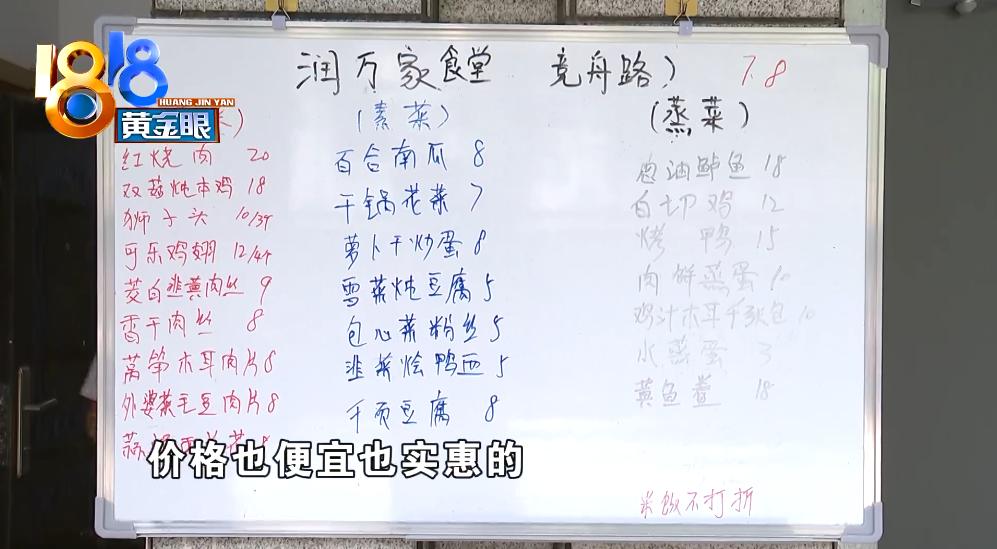 1818
HUANG JIN YAN
黄金眼
润万家食堂 竞舟路） 7.8
菜）
红烧肉 20
双菇炖本鸡 18
狮子头 10/3个
可乐鸡翅 12/4个
茭白韭黄肉丝 9
香干肉丝 8
莴笋木耳肉片 8
外婆菜毛豆肉片 8
蒜
（素菜）
百合南瓜 8
干锅花菜 7
萝卜干炒蛋 8
雪菜炖豆腐 5
包心菜粉丝 5
韭菜烩鸭血 5
千页豆腐 8
（蒸菜）
葱油鲈鱼 18
白切鸡 12
烤鸭 15
肉饼蒸蛋 10
鸡汁木耳千张包 10
水蒸蛋 3
黄鱼鲞 18
米饭不打折
价格也便宜也实惠的